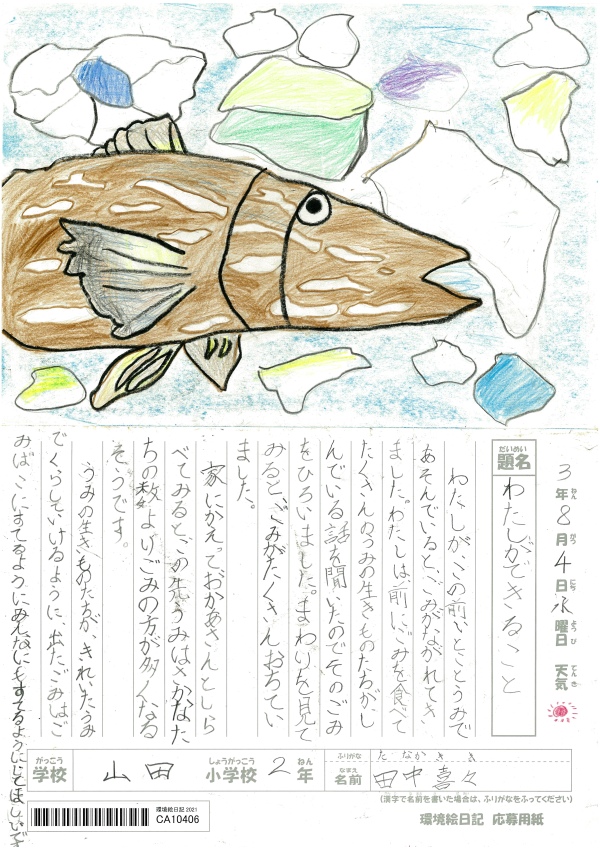 3年8月4日水曜日 天気
ねん がつ にち ようび てんき
だいめい
題名
わたしができること
わたしが、この前いとことうみで
あそんでいると、ごみがながれてき
ました。わたしは、前にごみを食べて
たくさんのうみの生きものたちがし
んでいる話を聞いたのでそのごみ
をひろいました。まわりを見て
みると、ごみがたくさんおちてい
ました。
家にかえって、おかあさんとしら
べてみると、この先うみはさかなた
ちの数よりごみの方が多くなる
そうです。
うみの生きものたちが、きれいなうみ
でくらしていけるように、出たごみはご
みばこにすてるようにみんなにもすてるようにしてほしいです
がっこう
学校
山田
しょうがっこう
小学校
2年
ねん
ふりがな
たなか きき
なまえ
名前
田中喜々
(漢字で名前を書いた場合は、ふりがなをふってください)
環境絵日記 2021
CA10406
環境絵日記 応募用紙